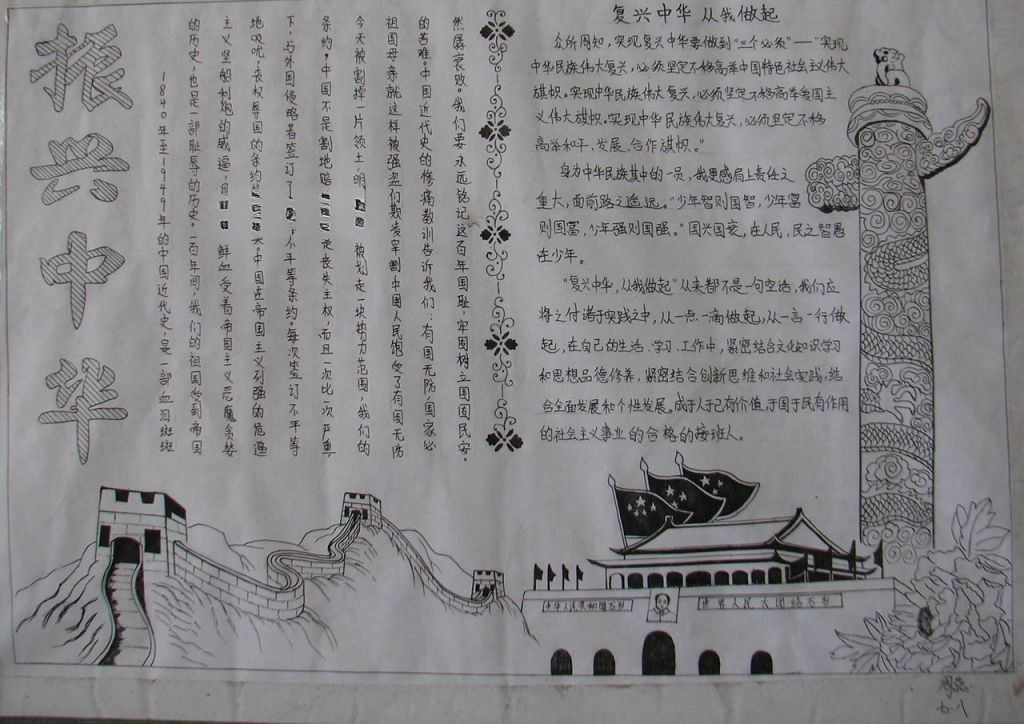 振兴中华
1840年至1949年的中国近代史,是一部血泪斑斑
的历史,也是一部耻辱的历史。一百年间,我们的祖国受到帝国
主义坚船利炮的威逼,鲜血受着帝国主义恶魔贪婪
地吸吮,丧权辱国的条约 中国在帝国主义列强的危逼
下,与外国侵略者签订了 个不平等条约。每次签订不平等
条约,中国不是割地赔 是丧失主权,而且一次比一次严重
今天被割掉一片领土,明 被划走一块势力范围,我们的
祖国母亲就这样被强盗们欺凌宰割中国人民饱受了有国无防
的苦难。中国近代史的惨痛教训告诉我们:有国无防,国家必
然孱衰败。我们要永远铭记这百年国耻,牢固树立国固民安。
复兴中华 从我做起
众所周知,实现复兴中华要做到“三个必须”——“实现
中华民族伟大复兴,必须坚定不移高举中国特色社会主义伟大
旗帜。实现中华民族伟大复兴,必须坚定不移高举爱国主
义伟大旗帜。实现中华民族伟大复兴,必须坚定不移
高举和平、发展、合作旗帜。”
身为中华民族其中的一员,我更感肩上责任之
重大,面前路之遥远。“少年智则国智,少年富
则国富,少年强则国强。”国兴国衰,在人民,民之智愚
在少年。
“复兴中华,从我做起”从来都不是一句空话,我们应
将之付诸于实践之中,从一点一滴做起,从一言一行做
起,在自己的生活、学习、工作中,紧密结合文化知识学习
和思想品德修养,紧密结合创新思维和社会实践,结
合全面发展和个性发展。成于人于己有价值,于国于民有作用
的社会主义事业的合格的接班人。
中华人民共和国万岁
世界人民大团结万岁